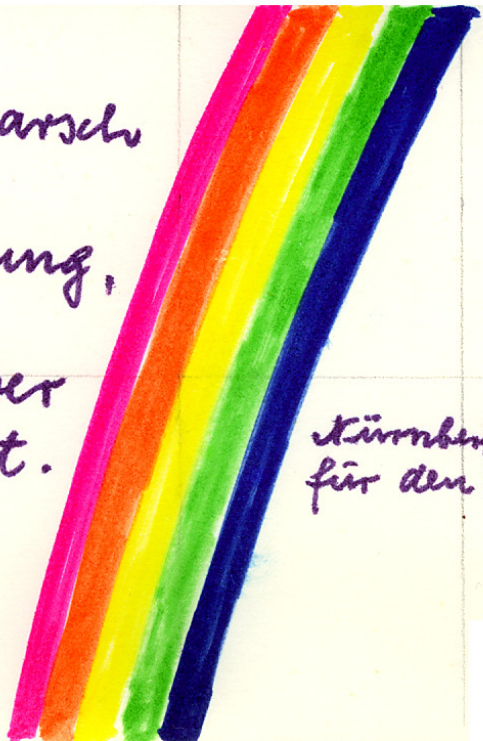 arsch
ung,
er
t.
Nürnber
für den